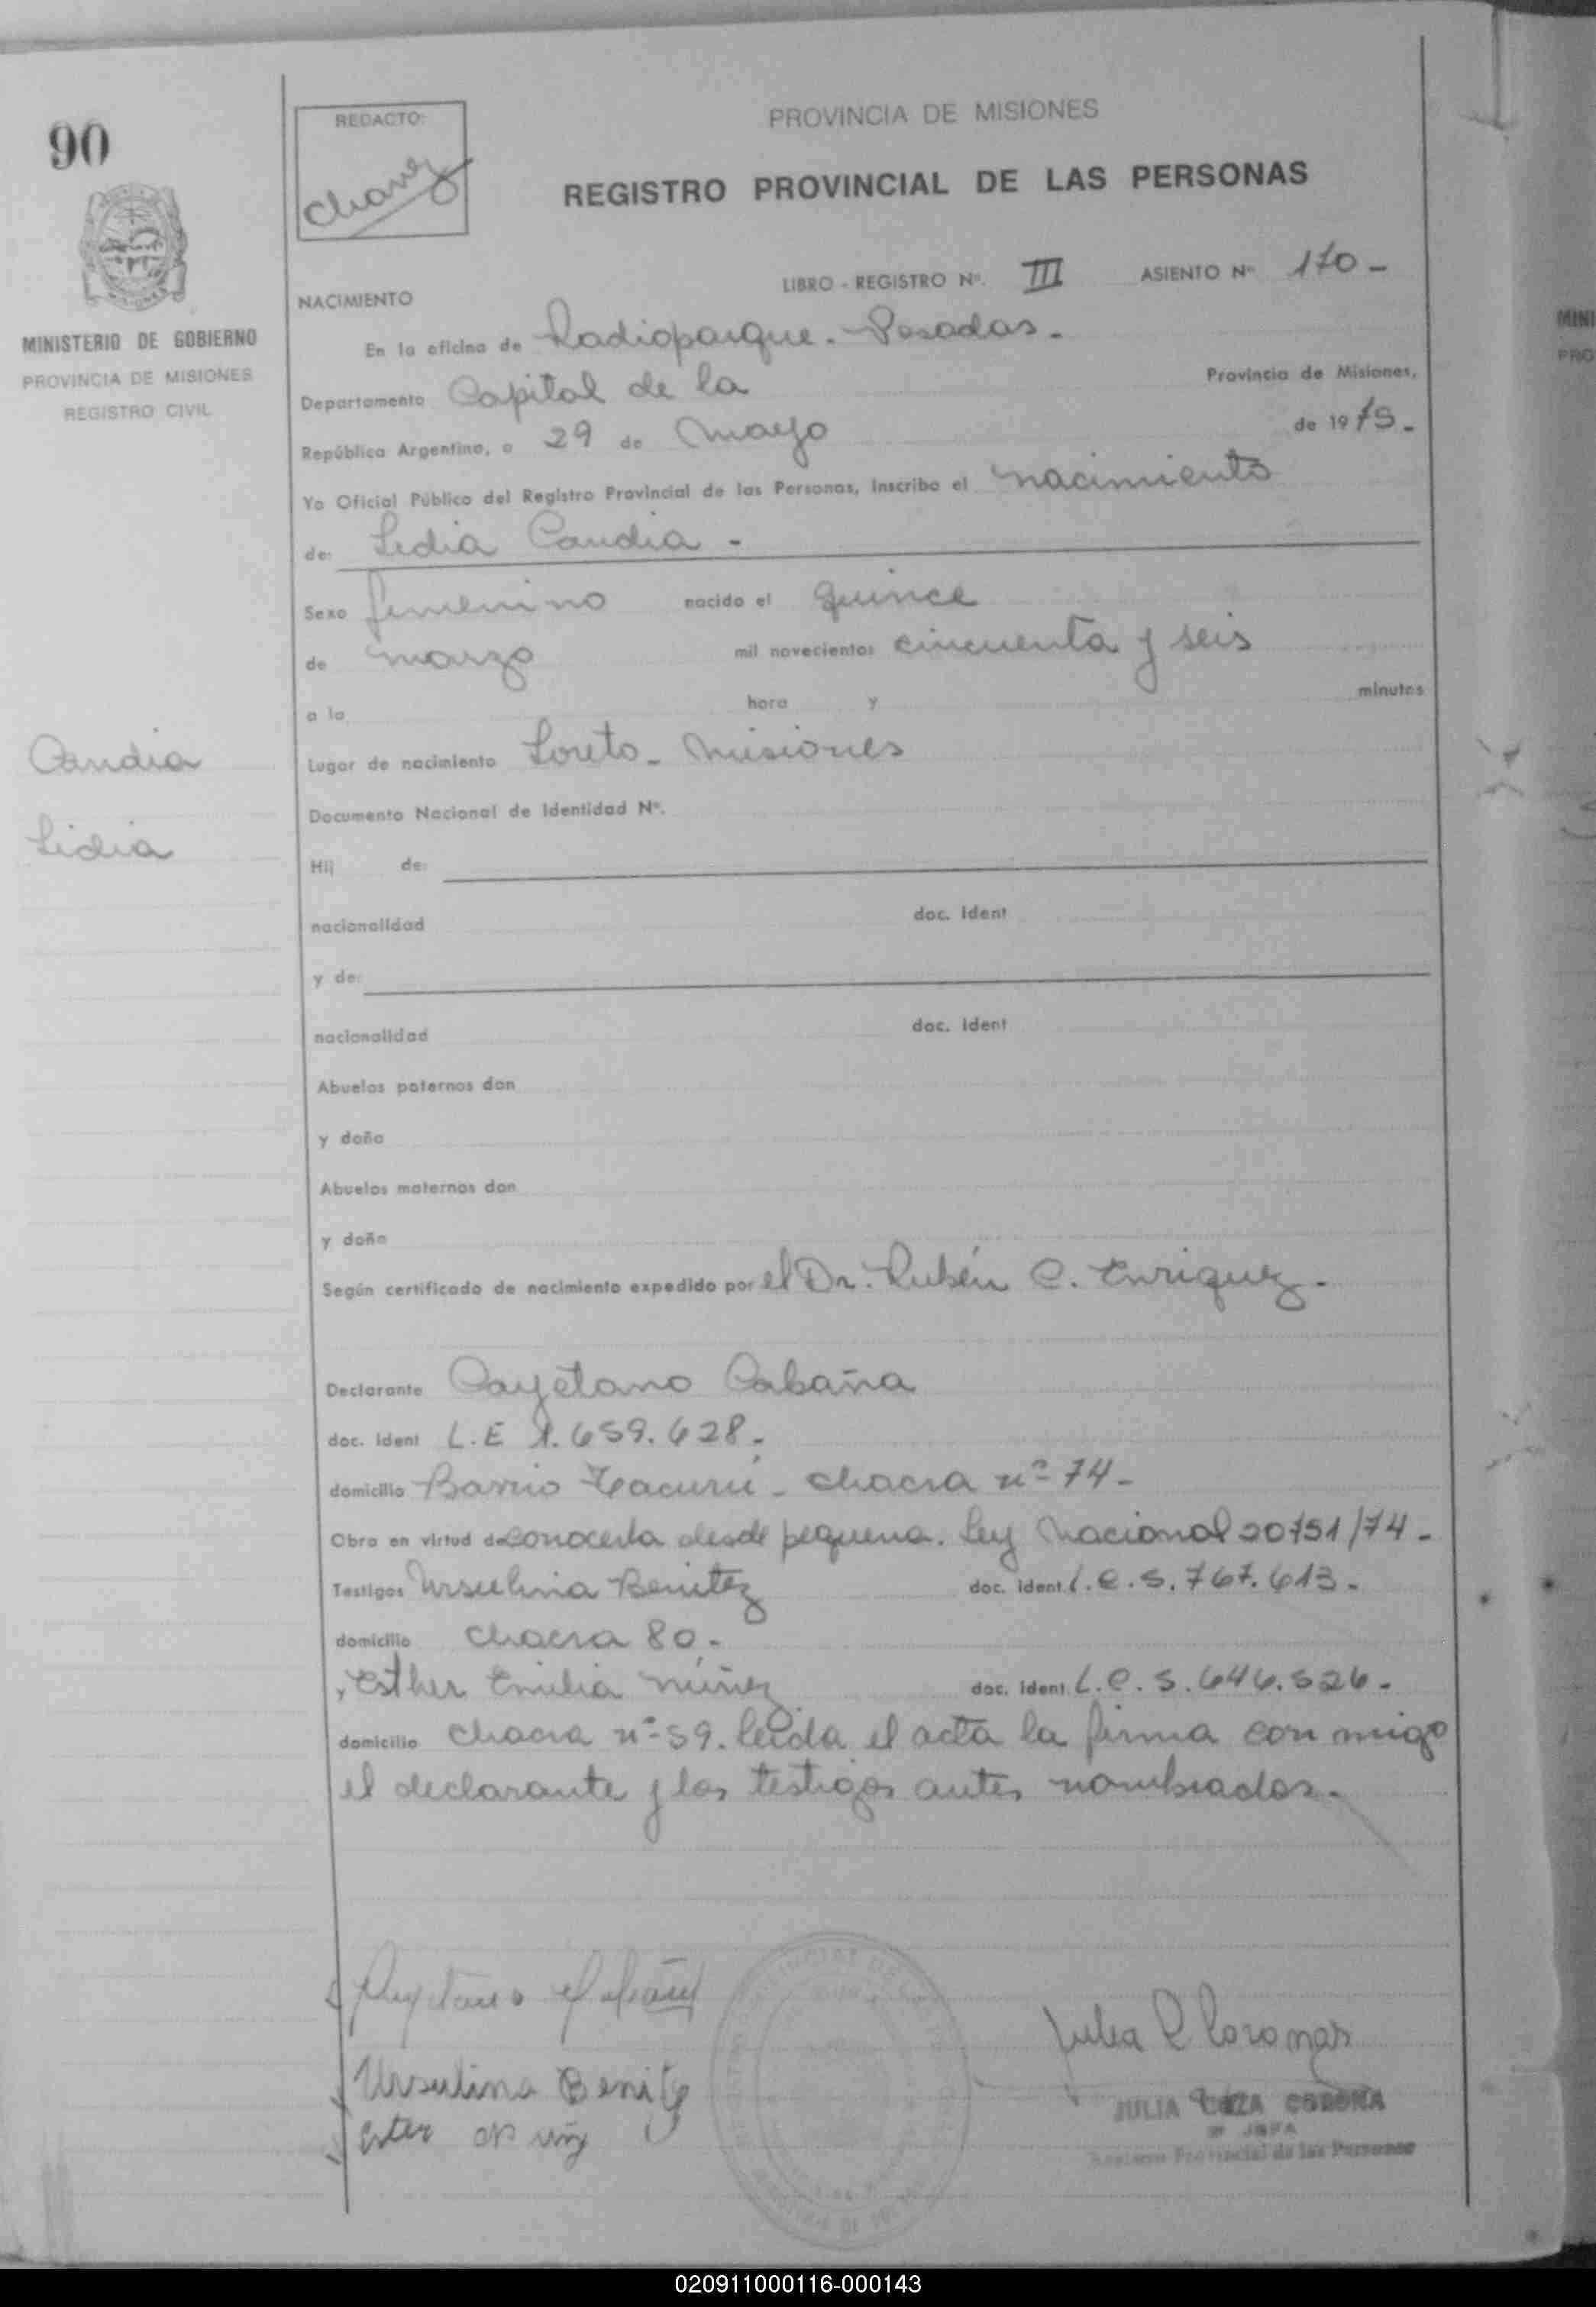 90
REDACTO:
Chavez
PROVINCIA DE MISIONES
REGISTRO PROVINCIAL DE LAS PERSONAS
LIBRO - REGISTRO Nº. III ASIENTO Nº 170 -
NACIMIENTO
MINISTERIO DE GOBIERNO
PROVINCIA DE MISIONES
REGISTRO CIVIL
En la oficina de Radioparque. - Posadas.
Departamento Capital de la Provincia de Misiones,
República Argentina, a 29 de Mayo de 1975.
Yo Oficial Público del Registro Provincial de las Personas, Inscribo el nacimiento
de: Lidia Candia -
Sexo femenino nacido el quince
de marzo mil novecientos cincuenta y seis
a la hora y minutos
Candia
Lidia
Lugar de nacimiento Loreto - Misiones
Documento Nacional de Identidad Nº.
Hij de:
nacionalidad doc. Ident
y de:
nacionalidad doc. Ident
Abuelos paternos don
y doña
Abuelos maternos don
y doña
Según certificado de nacimiento expedido por el Dr. Rubén C. Enriquez.
Declarante Cayetano Cabaña
doc. Ident L.E 1.659.628.
domicilio Barrio Tacurú - chacra nº 74 -
Obra en virtud de conocerla desde pequena. Ley Nacional 20751/74 -
Testigos Ursulina Benitez doc. Ident. l.c. 5.767.613.
domicilio chacra 80.
y Esther Emilia Núñez doc. Ident. L.C. 5.646.526.
domicilio chacra nº 59. leída el acta la firma con migo
el declarante y los testigos antes nombrados.
Ursulina Benitez
Julia Coronas
JULIA CORONA
JEFA
Registro Provincial de las Personas
020911000116-000143